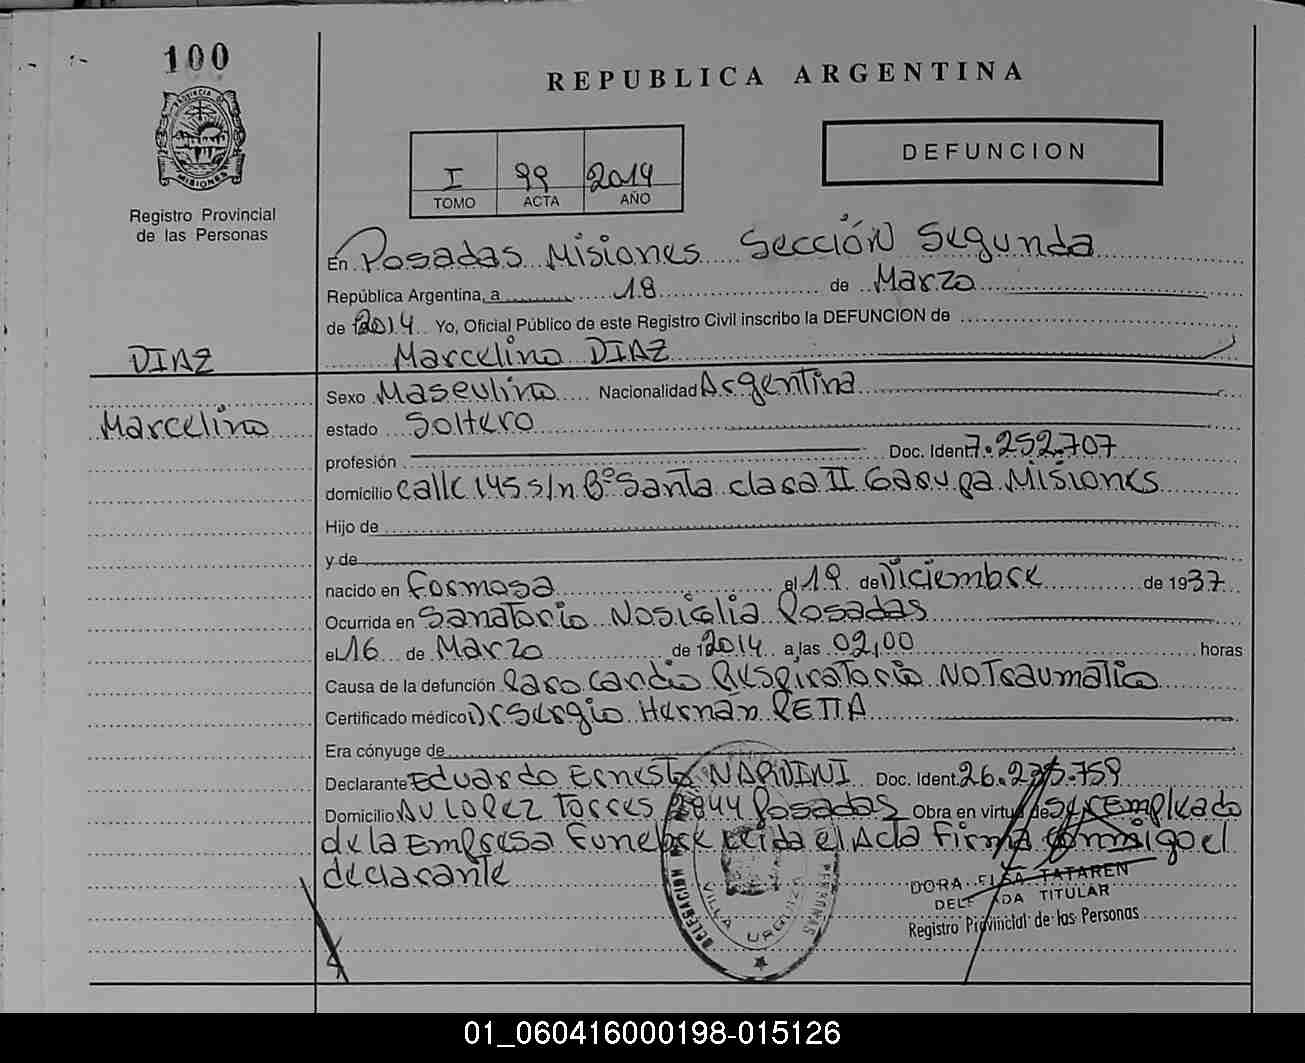 100
PROVINCIA DE
MISIONES
Registro Provincial
de las Personas
DIAZ
Marcelino
REPUBLICA ARGENTINA
I 99 2014
TOMO ACTA AÑO
DEFUNCION
En Posadas Misiones Sección Segunda
República Argentina, a 18 de Marzo
de 12014 Yo, Oficial Público de este Registro Civil inscribo la DEFUNCION de
Marcelino DIAZ
Sexo Masculino Nacionalidad Argentina
estado Soltero
profesión Doc. Ident. 7.252.707
domicilio calle 145 s/n Bº Santa clara II Garupa Misiones
Hijo de
y de
nacido en Formosa el 19 de Diciembre de 1937
Ocurrida en Sanatorio Nosiglia Posadas
el 16 de Marzo de 12014 a las 02,00 horas
Causa de la defunción Paro cardio Respiratorio No Traumatico
Certificado médico Dr Sergio Hernán PETTA
Era cónyuge de
Declarante Eduardo Ernesto NARDINI Doc. Ident. 26.2 .759
Domicilio AV LOPEZ Torres 2844 Posadas Obra en virtud de ser Empleado
de la Empresa Funebre Leida el Acta Firma conmigo el
declarante
DELEGACION
VILLA URQUIZA
PERSONAS
DORA ELSA TATAREN
DELEGADA TITULAR
Registro Provincial de las Personas
01_060416000198-015126